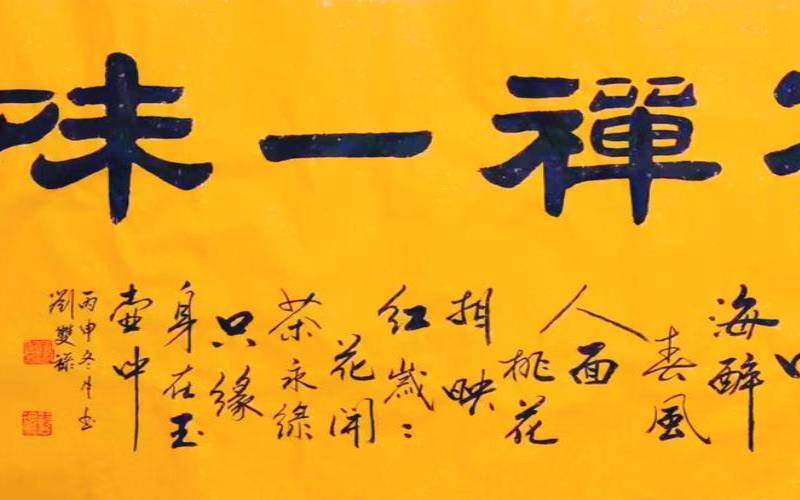 禪一味
海醉
春風
人面
桃花
相映
紅歲々
花開
茶永綠
只緣
身在玉
壺中
丙申冬月書
劉雙